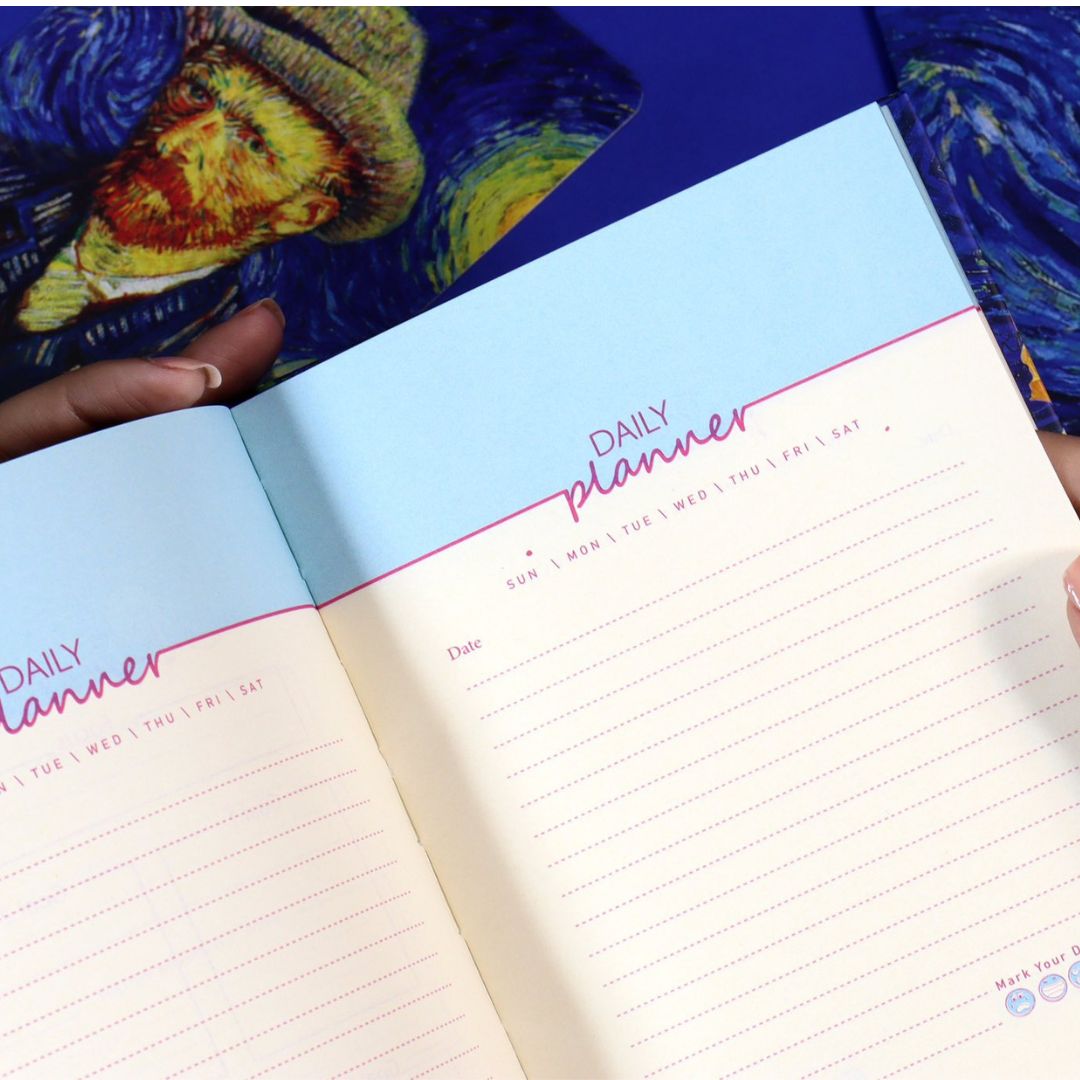 DAILY
lanner
TUE \ WED \ THU \ FRI \ SAT
DAILY
planner
SUN \ MON \ TUE \ WED \ THU \ FRI \ SAT
Date
Mark Your